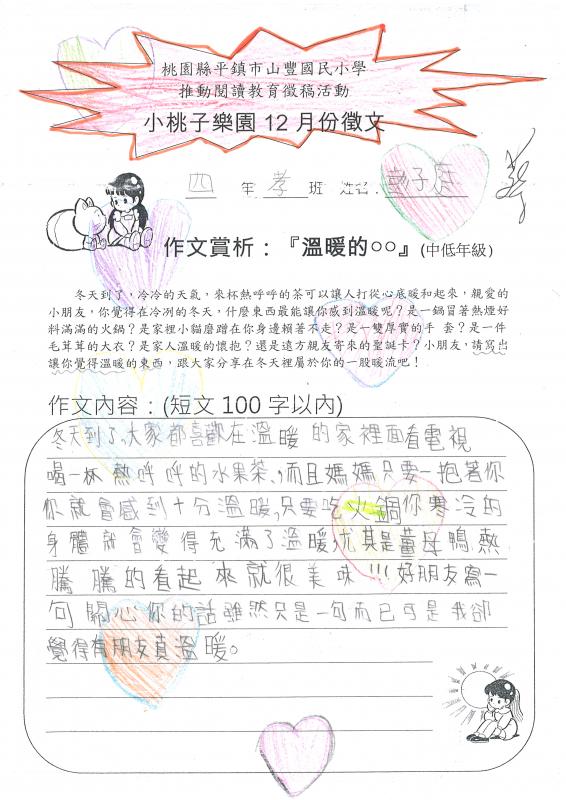 桃園縣平鎮市山豐國民小學
推動閱讀教育徵稿活動
小桃子樂園12月份徵文
四 年 孝 班 姓名: 子庭
作文賞析:『溫暖的○○』(中低年級)
冬天到了,冷冷的天氣,來杯熱呼呼的茶可以讓人打從心底暖和起來,親愛的
小朋友,你覺得在冷冽的冬天,什麼東西最能讓你感到溫暖呢?是一鍋冒著熱煙好
料滿滿的火鍋?是家裡小貓磨蹭在你身邊賴著不走?是一雙厚實的手 套?是一件
毛茸茸的大衣?是家人溫暖的懷抱?還是遠方親友寄來的聖誕卡?小朋友,請寫出
讓你覺得溫暖的東西,跟大家分享在冬天裡屬於你的一股暖流吧!
作文內容:(短文100字以內)
冬天到了,大家都喜歡在溫暖的家裡面看電視
喝一杯熱呼呼的水果茶、,而且媽媽只要一抱著你
你就會感到十分溫暖,只要吃火鍋你寒冷的
身體就會變得充滿了溫暖,尤其是薑母鴨熱
騰騰的看起來就很美味!!!好朋友寫一
句關心你的話雖然只是一句而已可是我卻
覺得有朋友真溫暖。